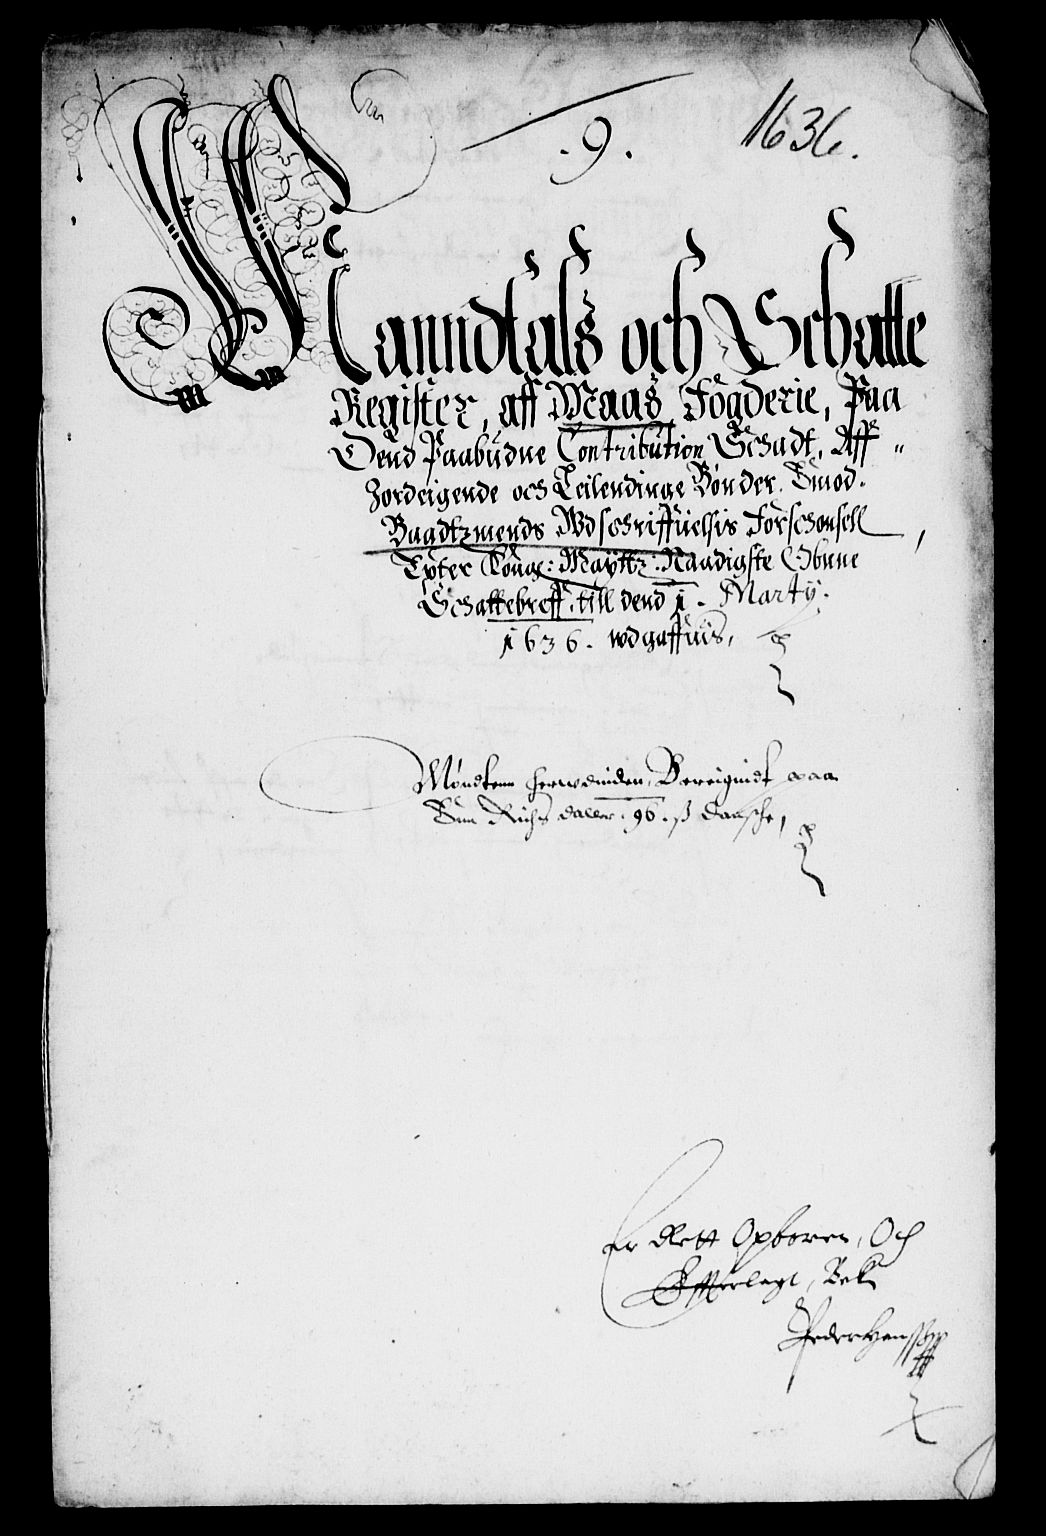 .9.
1636.
Manndtals och Schatte
Register, aff Maas Fögderie, Paa
Dend Paabudne Contribution Schadt, Aff
Jordeigende och Leilendinge Bønder. Emod.
Bugdtzmends Wdschriffuelsis Forschonsell
Epter Kong: Maytts: Naadigste Obnne
Schattebreff, till dend 1. Marty.
1636. wdgaffuis,
Møndtenn herwdinden, Bereignidt paa
Enn Richs daler. 96. ß danshe,
er Rett Opboren, Och
Efterlagt, Bek
Peder Hanss